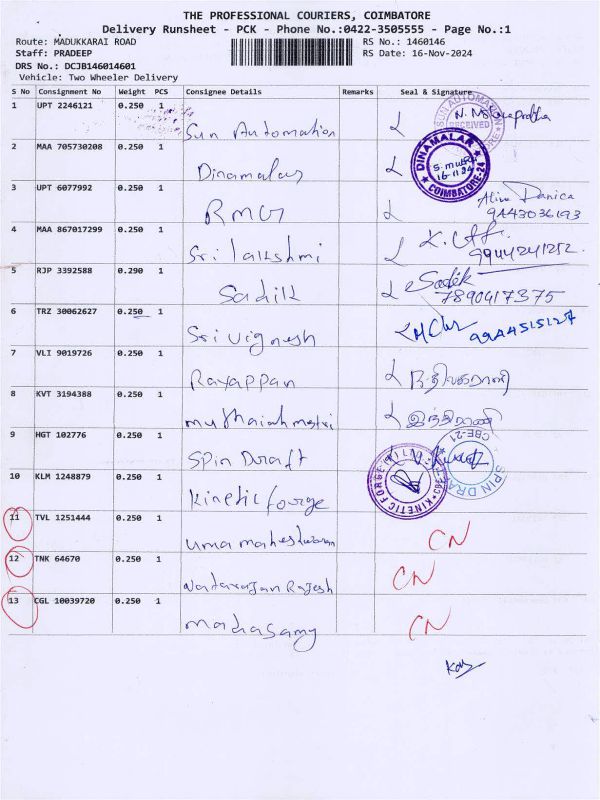 THE PROFESSIONAL COURIERS, COIMBATORE
Delivery Runsheet - PCK - Phone No.:0422-3505555 - Page No.:1
Route: MADUKKARAI ROAD RS No.: 1460146
Staff: PRADEEP RS Date: 16-Nov-2024
DRS No.: DCJB146014601
Vehicle: Two Wheeler Delivery
S No Consignment No Weight PCS Consignee Details Remarks Seal & Signature
1 UPT 2246121 0.250 1 Sun Automation SUN AUTOMATION RECEIVED
2 MAA 705730208 0.250 1 Dinamalar DINAMALAR 16-11-24 COIMBATORE-24
3 UPT 6077992 0.250 1 RMG Danica
9443036193
4 MAA 867017299 0.250 1 Sri lakshmi
9944241252
5 RJP 3392588 0.290 1 Sadik Sadik
7890417375
6 TRZ 30062627 0.250 1 Sri vignesh 9944515127
7 VLI 9019726 0.250 1 Rayappan
8 KVT 3194388 0.250 1 இந்திராணி
9 HGT 102776 0.250 1 Spin Draft SPIN DRA CBE-21
10 KLM 1248879 0.250 1 Kinetic forge KINETIC FORGE
11 TVL 1251444 0.250 1 uma maheshwaran CN
12 TNK 64670 0.250 1 Natarajan Rajesh CN
13 CGL 10039720 0.250 1 Madhasamy CN